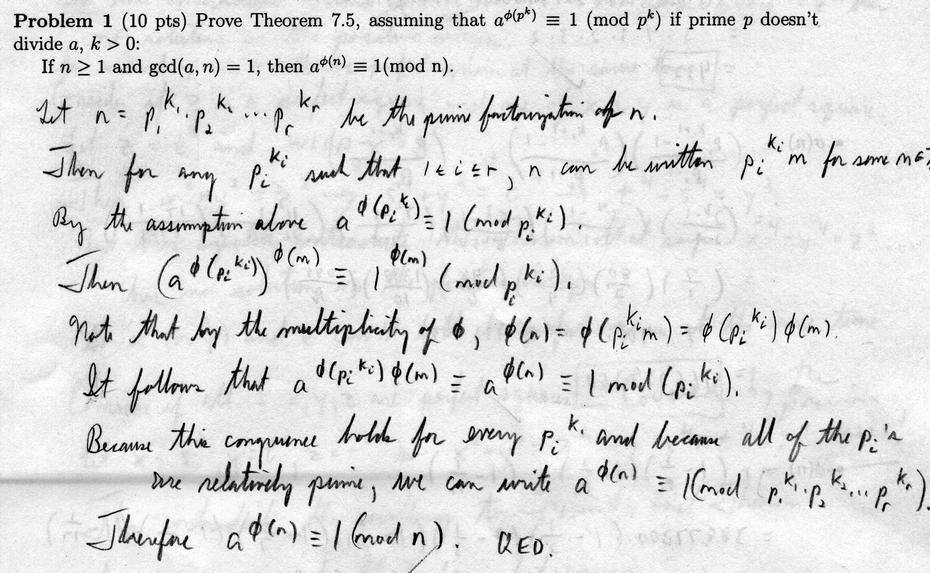 Problem 1 (10 pts) Prove Theorem 7.5, assuming that a^{ϕ(p^k)} ≡ 1 (mod p^k) if prime p doesn't
divide a, k > 0:
If n ≥ 1 and gcd(a, n) = 1, then a^{ϕ(n)} ≡ 1(mod n).
Let n = p_1^{k_1} · p_2^{k_2} ... p_r^{k_r} be the prime factorization of n.
Then for any p_i^{k_i} such that 1 ≤ i ≤ r, n can be written p_i^{k_i} m for some m ∈ Z
By the assumption above a^{ϕ(p_i^{k})} ≡ 1 (mod p_i^{k_i}).
Then (a^{ϕ(p_i^{k_i})})^{ϕ(m)} ≡ 1^{ϕ(m)} (mod p_i^{k_i}).
Note that by the multiplicity of ϕ, ϕ(n) = ϕ(p_i^{k_i} m) = ϕ(p_i^{k_i}) ϕ(m).
It follows that a^{ϕ(p_i^{k_i}) ϕ(m)} ≡ a^{ϕ(n)} ≡ 1 mod (p_i^{k_i}).
Because this congruence holds for every p_i^{k_i} and because all of the p_i's
are relatively prime, we can write a^{ϕ(n)} ≡ 1 (mod p_1^{k_1} · p_2^{k_2} ... p_r^{k_r}).
Therefore a^{ϕ(n)} ≡ 1 (mod n). QED.